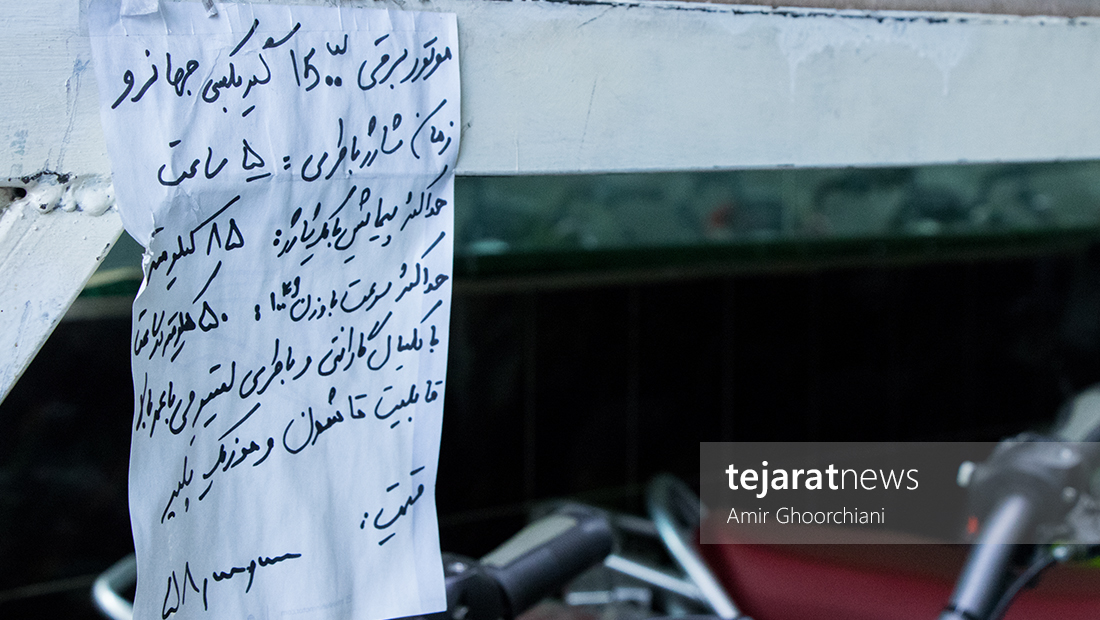 موتور برقی 1500 گیربکسی جهانرو
زمان شارژ باطری : ۵ ساعت
حداکثر پیمایش با یکبار شارژ : ۸۵ کیلومتر
حداکثر سرعت با وزن : ۵۰ کیلومتر در ساعت
با یکسال گارانتی و باطری لیتیومی با عمر بالا
قابلیت تاشدن و موزیک پلیر
قیمت :
tejaratnews
Amir Ghoorchiani